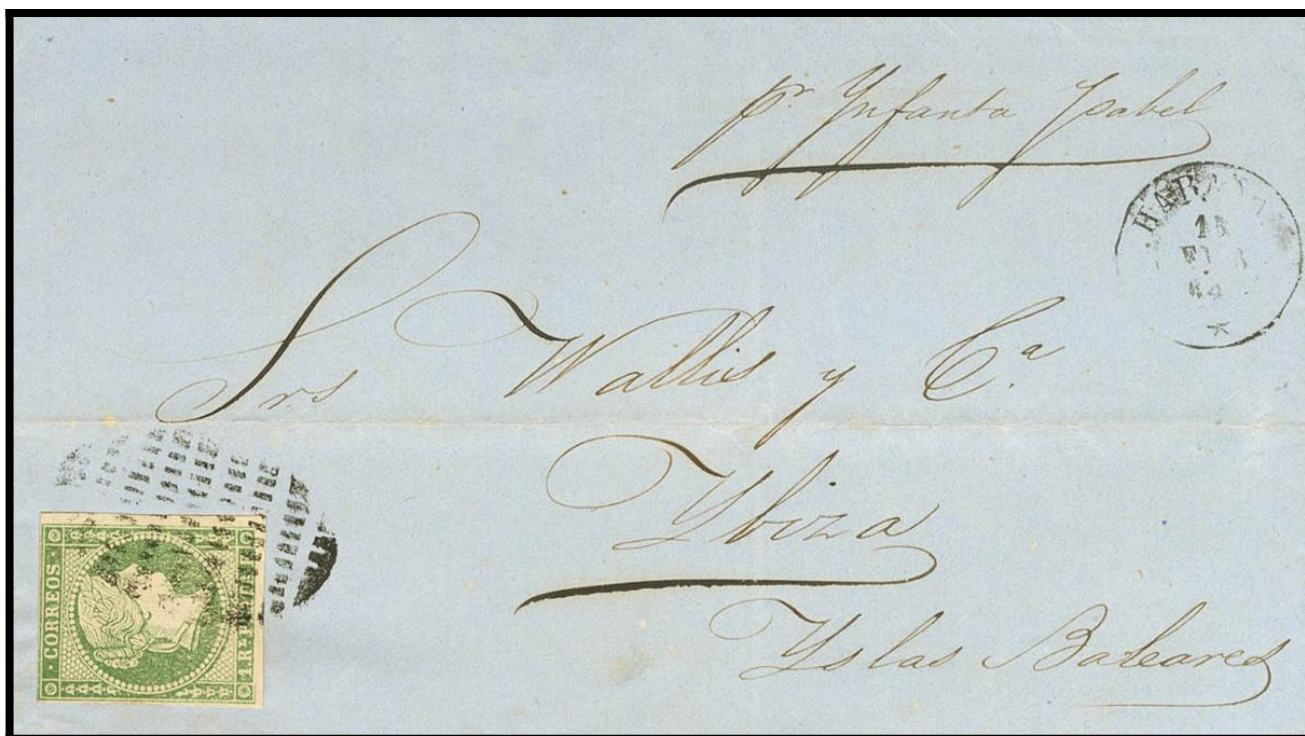 pr. Ynfanta Ysabel
HABANA
15
FEB
64
Srs Wallis y Cª
Ybiza
Yslas Baleares
CORREOS